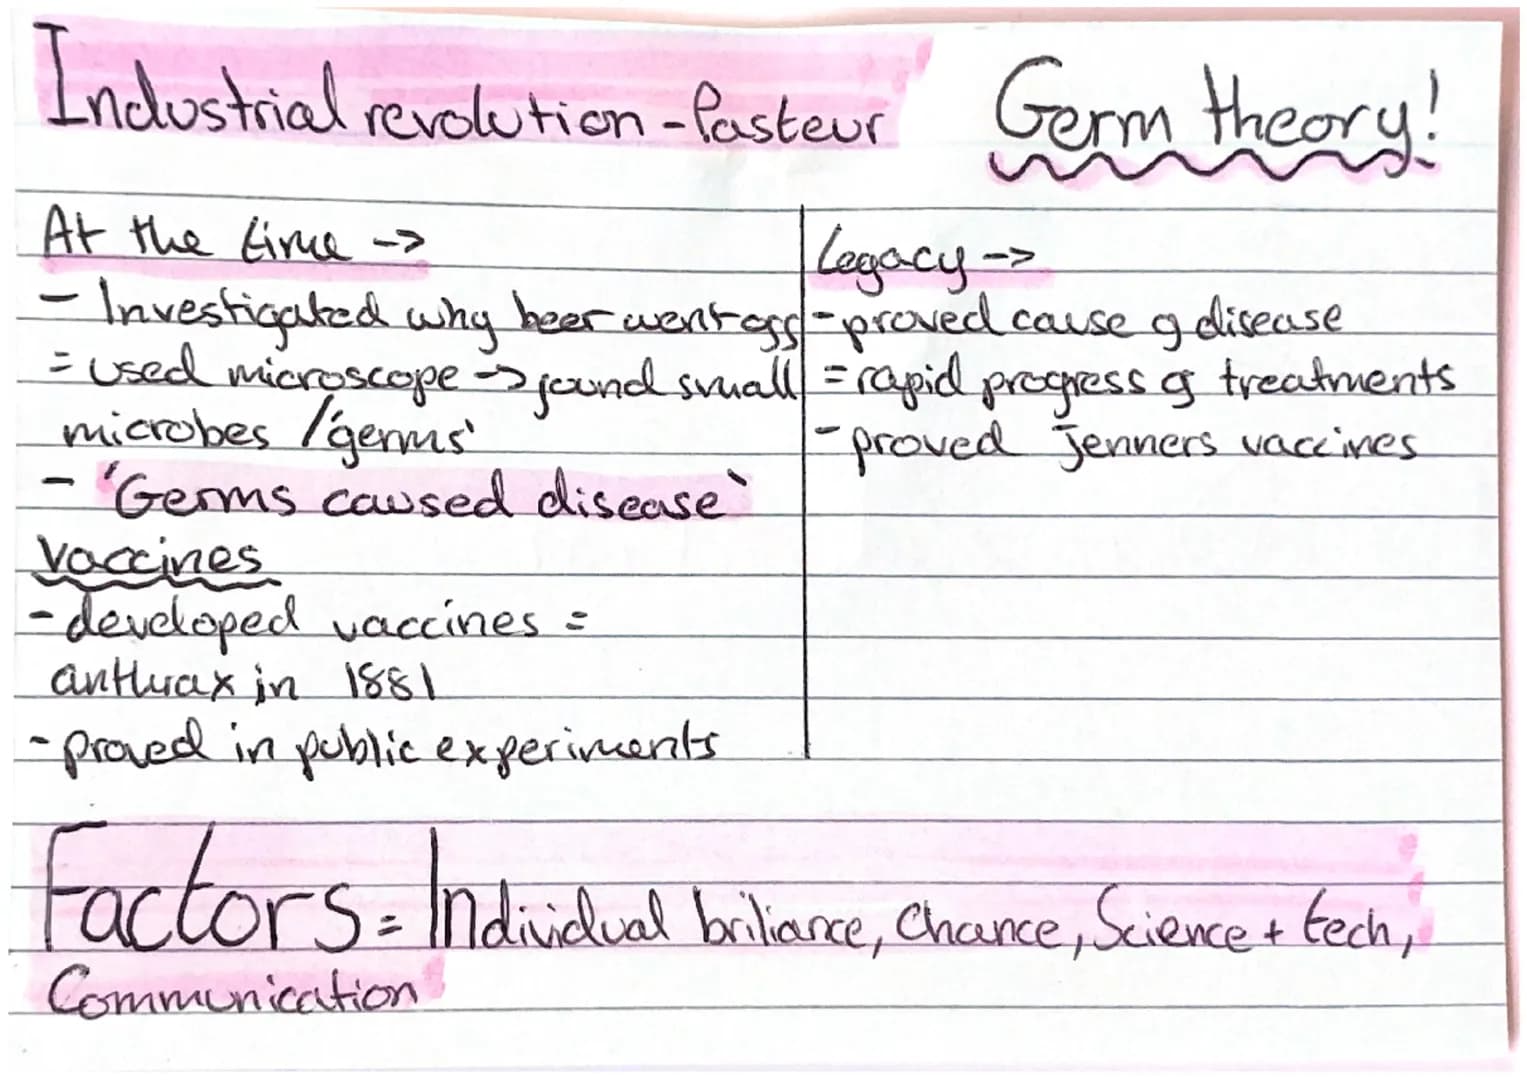 Industrial revolution - Pasteur
Germ theory!
At the time ->
- Investigated why beer went off
= used microscope -> found small
microbes / 'germs'
- 'Germs caused disease'
Vaccines
- developed vaccines =
anthrax in 1881
- proved in public experiments
Legacy ->
- proved cause of disease
= rapid progress of treatments
- proved Jenners vaccines
Factors = Individual briliance, Chance, Science + tech,
Communication